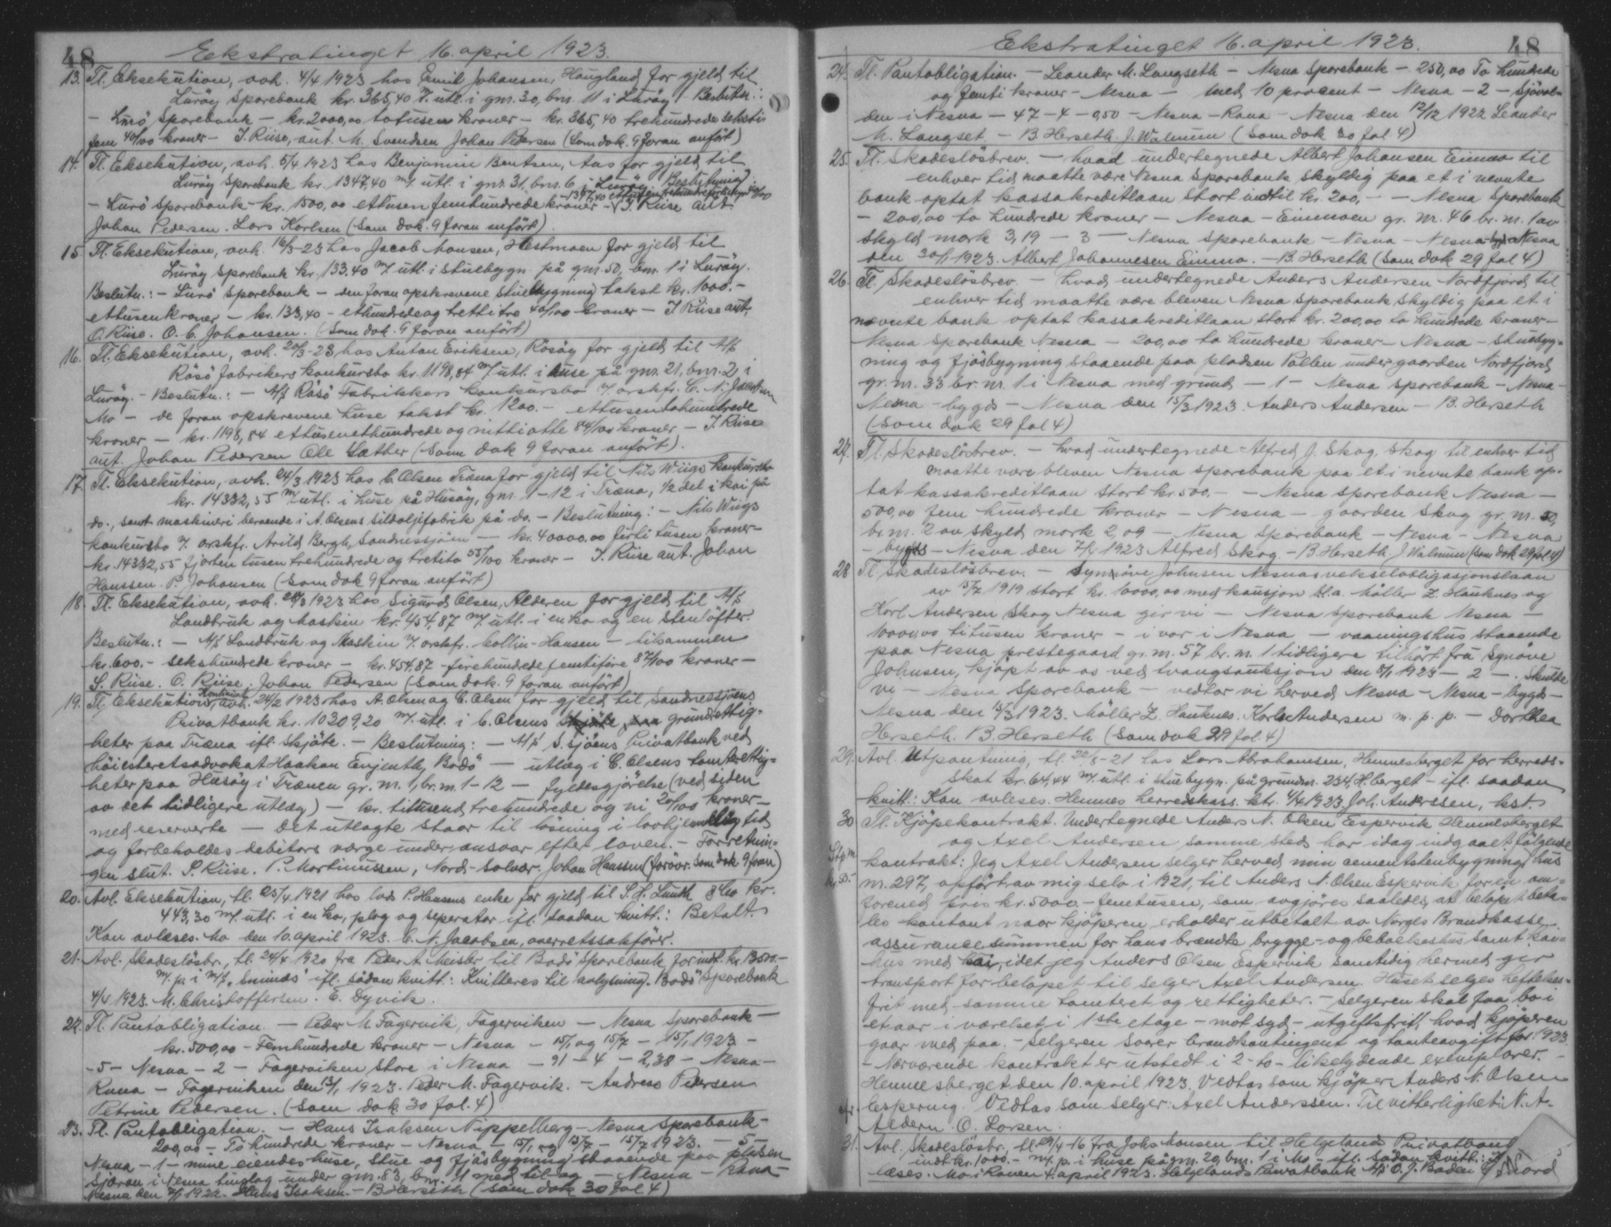 48
Ekstratinget 16. april 1923.
13. Tl. Eksekution, avh. 4/4 1923 hos Emil Johansen, Haugland for gjeld til
Lurøy Sparebank kr. 365,40 utl. i gnr. 30, bnr. 11 i Lurøy. Beslutn.:
- Lurö Sparebank - kr. 2000,00 totusen kroner - kr. 365,40 trehundredesekstio
fem 40/100 kroner - J. Riise, aut. M. Svendsen Johan Pedersen (Som dok. 9 foran anfört)
14. Tl. Eksekution, avh. 5/4 1923 hos Benjamin Bentsen, Aas for gjeld til
Lurøy Sparebank kr. 1347,40 m/ utl. i gnr. 31, bnr. 6 i Lurøy. Beslutning
- Lurö Sparebank - kr. 1500,00 ettusen femhundrede kroner - J. Riise aut.
Johan Pedersen. Lars Karlsen (Som dok. 9 foran anfört)
15. Tl. Eksekution, avh. 16/3-23 hos Jacob Monsen, Hestmoen for gjeld til
Lurøy Sparebank kr. 133.40 m/ utl. i stuebygn. på gnr. 50, bnr. 1 i Lurøy.
Beslutn.: - Lurö Sparebank - den foran opskrevene stuebygning takst kr. 1000.-
ettusen kroner - kr. 133,40 - ethundrede og tretti tre 40/100 kroner - J. Riise aut.
O. Riise. O. C. Johansen. (Som dok. 9 foran anfört)
16. Tl. Eksekution, avh. 20/3-23, hos Anton Eriksen, Rösöy for gjeld til A/s
Rösö Fabrikers konkursbo kr. 1198,84 m/ utl. i huse på gnr. 21, bnr. 2 i
Lurøy. - Beslutn.: - A/s Rösö Fabrikkers konkursbo v/ orskfr. C. N. Jacobsen
Mo - de foran opskrevene huse takst kr. 1200.- ettusentohundrede
kroner - kr. 1198,84 ettusenethundrede og nittiotte 84/100 kroner - J. Riise
aut. Johan Pedersen Ole Sæther (Som dok 9 foran anfört).
17. Tl. Eksekution, avh. 24/3 1923 hos C. Olsen Træna for gjeld til Nils Wiigs konkursbo
kr. 14332,55 m/ utl. i huse på Husøy, gnr. 1-12 i Træna, 1/2 del i kai på
do., samt maskineri beroende i A. Olsens Sildoljefabrik på do. - Beslutning: - Nils Wiigs
konkursbo v/ orskfr. Arild Bergh, Sandnessjöen - kr. 40000.00 förti tusen kroner -
kr. 14332,55 fjorten tusen trehundrede og tretito 55/100 kroner - J. Riise aut. Johan
Hanssen. P. Johansen (Som dok 9 foran anfört)
18. Tl. Eksekution, avh. 24/3 1923 hos Sigurd Olsen, Alderen for gjeld til A/s
Landbruk og Maskin kr. 454,87 m/ utl. i en ko og en stenløfter.
Beslutn.: - A/s Landbruk og Maskin v/ orskfr. Collin-Hansen - tilsammen
kr. 600.- sekshundrede kroner - kr. 454,87 - firehundrede femtifire 87/100 kroner -
S. Riise. O. Riise. Johan Pedersen (Som dok. 9 foran anfört)
19. Tl. Eksekution, avh. 24/2 1923 hos A. Olsen og C. Olsen for gjeld til Sandnessjöens
Privatbank kr. 10309,20 m/ utl. i C. Olsens grundrettig-
heter paa Træna ifl. skjöte. - Beslutning: - A/s S. sjöens Privatbank ved
höiesteretsadvokat Haakon Evjenth, Bodö - utlæg i C. Olsens tomterettig-
heter paa Husøy i Trænen gr. nr. 1, br. nr. 1-12 - fyldesgjörelse (ved siden
av det tidligere utlæg) - kr. titusend trehundrede og ni 20/100 kroner -
med reserverte - Det utlagte staar til lösning i lovhjemlig tid
og forbeholdes debitors værge under ansvar efter loven. - Forretnin-
gen slut. S. Riise. P. Martinussen, Nord-Solvær. Johan Hanssen (forövr. som dok 9 foran)
20. Avl. Eksekution, tl. 25/4 1921 hos Lars P. Hansens enke for gjeld til S. J. Lunth
443,30 m/ utl. i en ko, plog og seperator ifl. saadan kvitt.: Betalt.
Kan avlæses. Mo den 10. april 1923. C. N. Jacobsen, overretssakförer.
21. Avl. Skadeslösbr., tl. 24/4 1920 fra Peder A. Meisler til Bodö Sparebank for indt. kr. 13500.-
m/ p. i m/k "Smines" ifl. sådan kvitt: Kvitteres til avlysning. Bodö Sparebank
4/4 1923. M. Christoffersen. E. Dyvik.
22. Tl. Pantobligation. - Peder M. Fagervik, Fagerviken - Nesna Sparebank -
kr. 500,00 - Femhundrede kroner - Nesna - 15/1 og 15/7 - 15/1 1923 -
- 5 - Nesna - 2 - Fagerviken store i Nesna - 91 - 4 - 2,38 - Nesna -
Rana - Fagerviken den 13/1 1923. Peder M. Fagervik. - Andreas Pedersen
Petrine Pedersen. (Som dok 30 fol. 4)
23. Tl. Pantobligation. - Hans Isaksen Nuppelberg - Nesna Sparebank -
200,00 - To hundrede kroner - Nesna - 15/1 og 15/7 - 15/7 1923. - 5 -
Nesna - 1 - mine eiendes huse, stue og fjösbygning staaende paa pladsen
Sjöran i Nesna tinglag under gnr. 53, bnr. 1 med tilbeg - Nesna - Rana -
Nesna den 1922. Hans Isaksen - B. Herseth (som dok 30 fol 4)
Ekstratinget 16. april 1923.
48
24. Tl. Pantobligation. - Leander M. Langseth - Nesna Sparebank - 250,00 To hundrede
og femti kroner - Nesna - med 10 procent - Nesna - 2 - Sjöval-
den i Nesna - 47 - 4 - 0,50 - Nesna - Rana - Nesna den 12/12 1922 Leander
M. Langset - B. Herseth. J. Walmum (Som dok 30 fol 4)
25. Tl. Skadeslösbrev. - hvad undertegnede Albert Johansen Einmo til
enhver tid maatte være Nesna Sparebank skyldig paa et i nevnte
bank optat kassakreditlaan stort indtil kr. 200,- - Nesna Sparebank
- 200,00 to hundrede kroner - Nesna - Einmoen gr. nr. 46 br. nr. 1 av
skyld mark 3,19 - 3 - Nesna Sparebank - Nesna - Nesna bygds Nesna
den 30/1 1923. Albert Johannesen Einmo. - B. Herseth (Som dok 29 fol 4)
26. Tl. Skadeslösbrev. - hvad undertegnede Anders Andersen Nordfjord til
enhver tid maatte være bleven Nesna Sparebank skyldig paa et i
nævnte bank optat kassakreditlaan stort kr. 200,00 to hundrede kroner -
Nesna Sparebank Nesna - 200,00 to hundrede kroner - Nesna - stuebyg-
ning og fjösbygning staaende paa pladsen Pallen under gaarden Nordfjord
gr. nr. 33 br. nr. 1 i Nesna med grund - 1 - Nesna Sparebank - Nesna -
Nesna - bygds - Nesna den 15/3 1923. Anders Andersen - B. Herseth
(Som dok 29 fol 4)
27. Tl. Skadeslösbrev. - hvad undertegnede Alfred J. Skog, Skog til enhver tid
maatte være bleven Nesna Sparebank paa et i nevnte bank op-
tat kassakreditlaan stort kr. 500.- - Nesna Sparebank Nesna -
500,00 fem hundrede kroner - Nesna - gaarden Skog gr. nr. 50,
br. nr. 2 av skyld mark 2,09 - Nesna Sparebank - Nesna - Nesna
- bygds - Nesna den 7/2 1923 Alfred Skog. - B. Herseth J. Walmum (Som dok 29 fol 4)
28. Tl. Skadeslösbrev. - Synnöve Johnsen Nesnas vekselobligasjonslaan
av 15/7 1919 stort kr. 10000,00 med kausjon bl.a. Möller Z. Hauknes og
Karl Andersen Skog Nesna gir vi - Nesna Sparebank Nesna -
10000,00 titusen kroner - i vor i Nesna - vaaningshus staaende
paa Nesna prestegaard gr. nr. 57 br. nr. 1 tidligere tilhört fru Synöve
Johnsen, kjöpt av os ved tvangsauksjon den 8/1 1923 - 2 - Skulde
vi - Nesna Sparebank - vedtar vi herved Nesna - Nesna - bygds -
Nesna den 14/3 1923. Möller Z. Hauknes. Karl Andersen m. p. p. - Dorthea
Herseth. B. Herseth (Som dok 29 fol 4)
29. Avl. Utpantning, tl. 20/5-21 hos Lars Abrahamsen, Hemnesberget for herreds-
skat kr. 64,44 m/ utl. i stuebygn. på grundnr. 234, H.berget - ifl. saadan
kvitt.: Kan avleses. Hemnes herredskass. ktr. 4/4 1923 Joh. Anderssen, kst.
30. Tl. Kjöpekontrakt. Undertegnede Anders N. Olsen Espervik Hemnesberget
og Axel Andersen samme sted har idag indgaaet fölgende
kontrakt: Jeg Axel Andersen selger herved min cementstenbygning hus
nr. 297, opfört av mig selv i 1921, til Anders N. Olsen Espervik for en om-
forened pris kr. 5000.- femtusen, som avgjöres saaledes, at belöpet beta-
les kontant naar kjöperen erholder utbetalt av Norges Brandkasse
assurancesummen for hans brændte brygge- og beboelseshus samt kau-
hus med kai, idet jeg Anders Olsen Espervik samtidig hermed gir
transport for belöpet til selger Axel Andersen. Huset selges heftelses-
frit med samme tomteret og rettigheter. - Selgeren skal faa bo i
et aar i værelset i 1ste etage - mot syd - utgiftsfrit, hvad kjöperen
gaar med paa. - Selgeren svarer brandkontingent og tomteavgift for 1923.
- Nærværende kontrakt er utstedt i 2 - to - likelydende exemplarer. -
Hemnesberget den 10. april 1923. Vedtas som kjöper: Anders N. Olsen
Espervig. Vedtas som selger: Axel Anderssen. Til vitterlighet: N. A.
Aldern O. Larsen.
31. Avl. Skadeslösbr., tl. 29/4-16 fra Johs Monsen til Helgelands Privatbank
indt. kr. 1000.- m/ p. i huse på gnr. 20, bnr. 1 i Mo - ifl. sådan kvitt.:
læses. Mo i Ranen 4. april 1923. Helgelands Privatbank A/s O. J. Baden